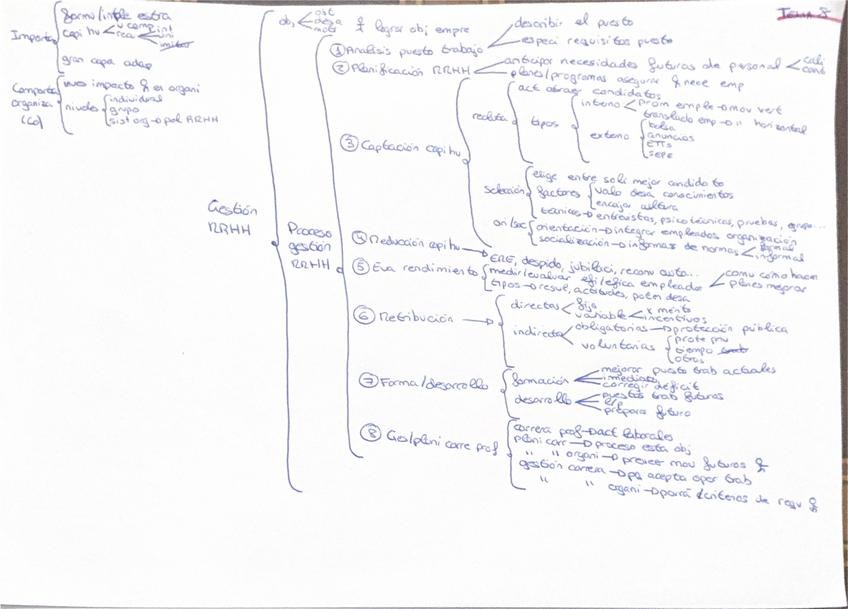 Tema 8
Importa
formu/imple estra
capi hu
v comp
rea
int
ini
imitar
gran capa adap
Comporta
organiza
(CO)
nues impacto & en organi
niveles
individual
grupo
sist org → pol RRHH
Gestión
RRHH
obj
obt
desa
moti
& lograr obj empre
Proceso
gestión
RRHH
① Analisis puesto trabajo
describir el puesto
especi requisitos puesto
② Planificación RRHH
anticipar necesidades futuras de personal
cali
cant
planes/programas asegurar & nece emp
③ Captación capi hu
recluta
act atraer candidatos
tipos
interno
prom emple → mov vert
translado emp → " horizontal
externo
bolsa
anuncios
ETTs
SEPE
selección
elige entre soli mejor candidato
factores
valo desa conocimientos
encajar cultura
técnicas → entrevistas, psicotécnicas, pruebas, grupo...
ori/soc
orientación → integrar empleados organización
socialización → informar de normas
formal
informal
④ Reducción capi hu → ERE, despido, jubilaci, recolo auto...
⑤ Eva rendimiento
medir/evaluar efi/efica empleados
comu como hacen
planes mejorar
tipos → resul, actitudes, poten desa
⑥ Retribución →
directas
fija
variable
x merito
incentivos
indirecta
obligatorias → protección pública
voluntarias
prote priv
tiempo
otros
⑦ Forma/desarrollo
formación
mejorar puesto trab actuales
inmediato
corregir deficit
desarrollo
puestos trab futuros
l/p
prepara futuro
⑧ Ges/plani carre prof
carrera prof → act laborales
plani carr → proceso esta obj
" " organi → prever mov futuros &
gestión carrera → pq acepta opor trab
" " organi → criterios de requ &